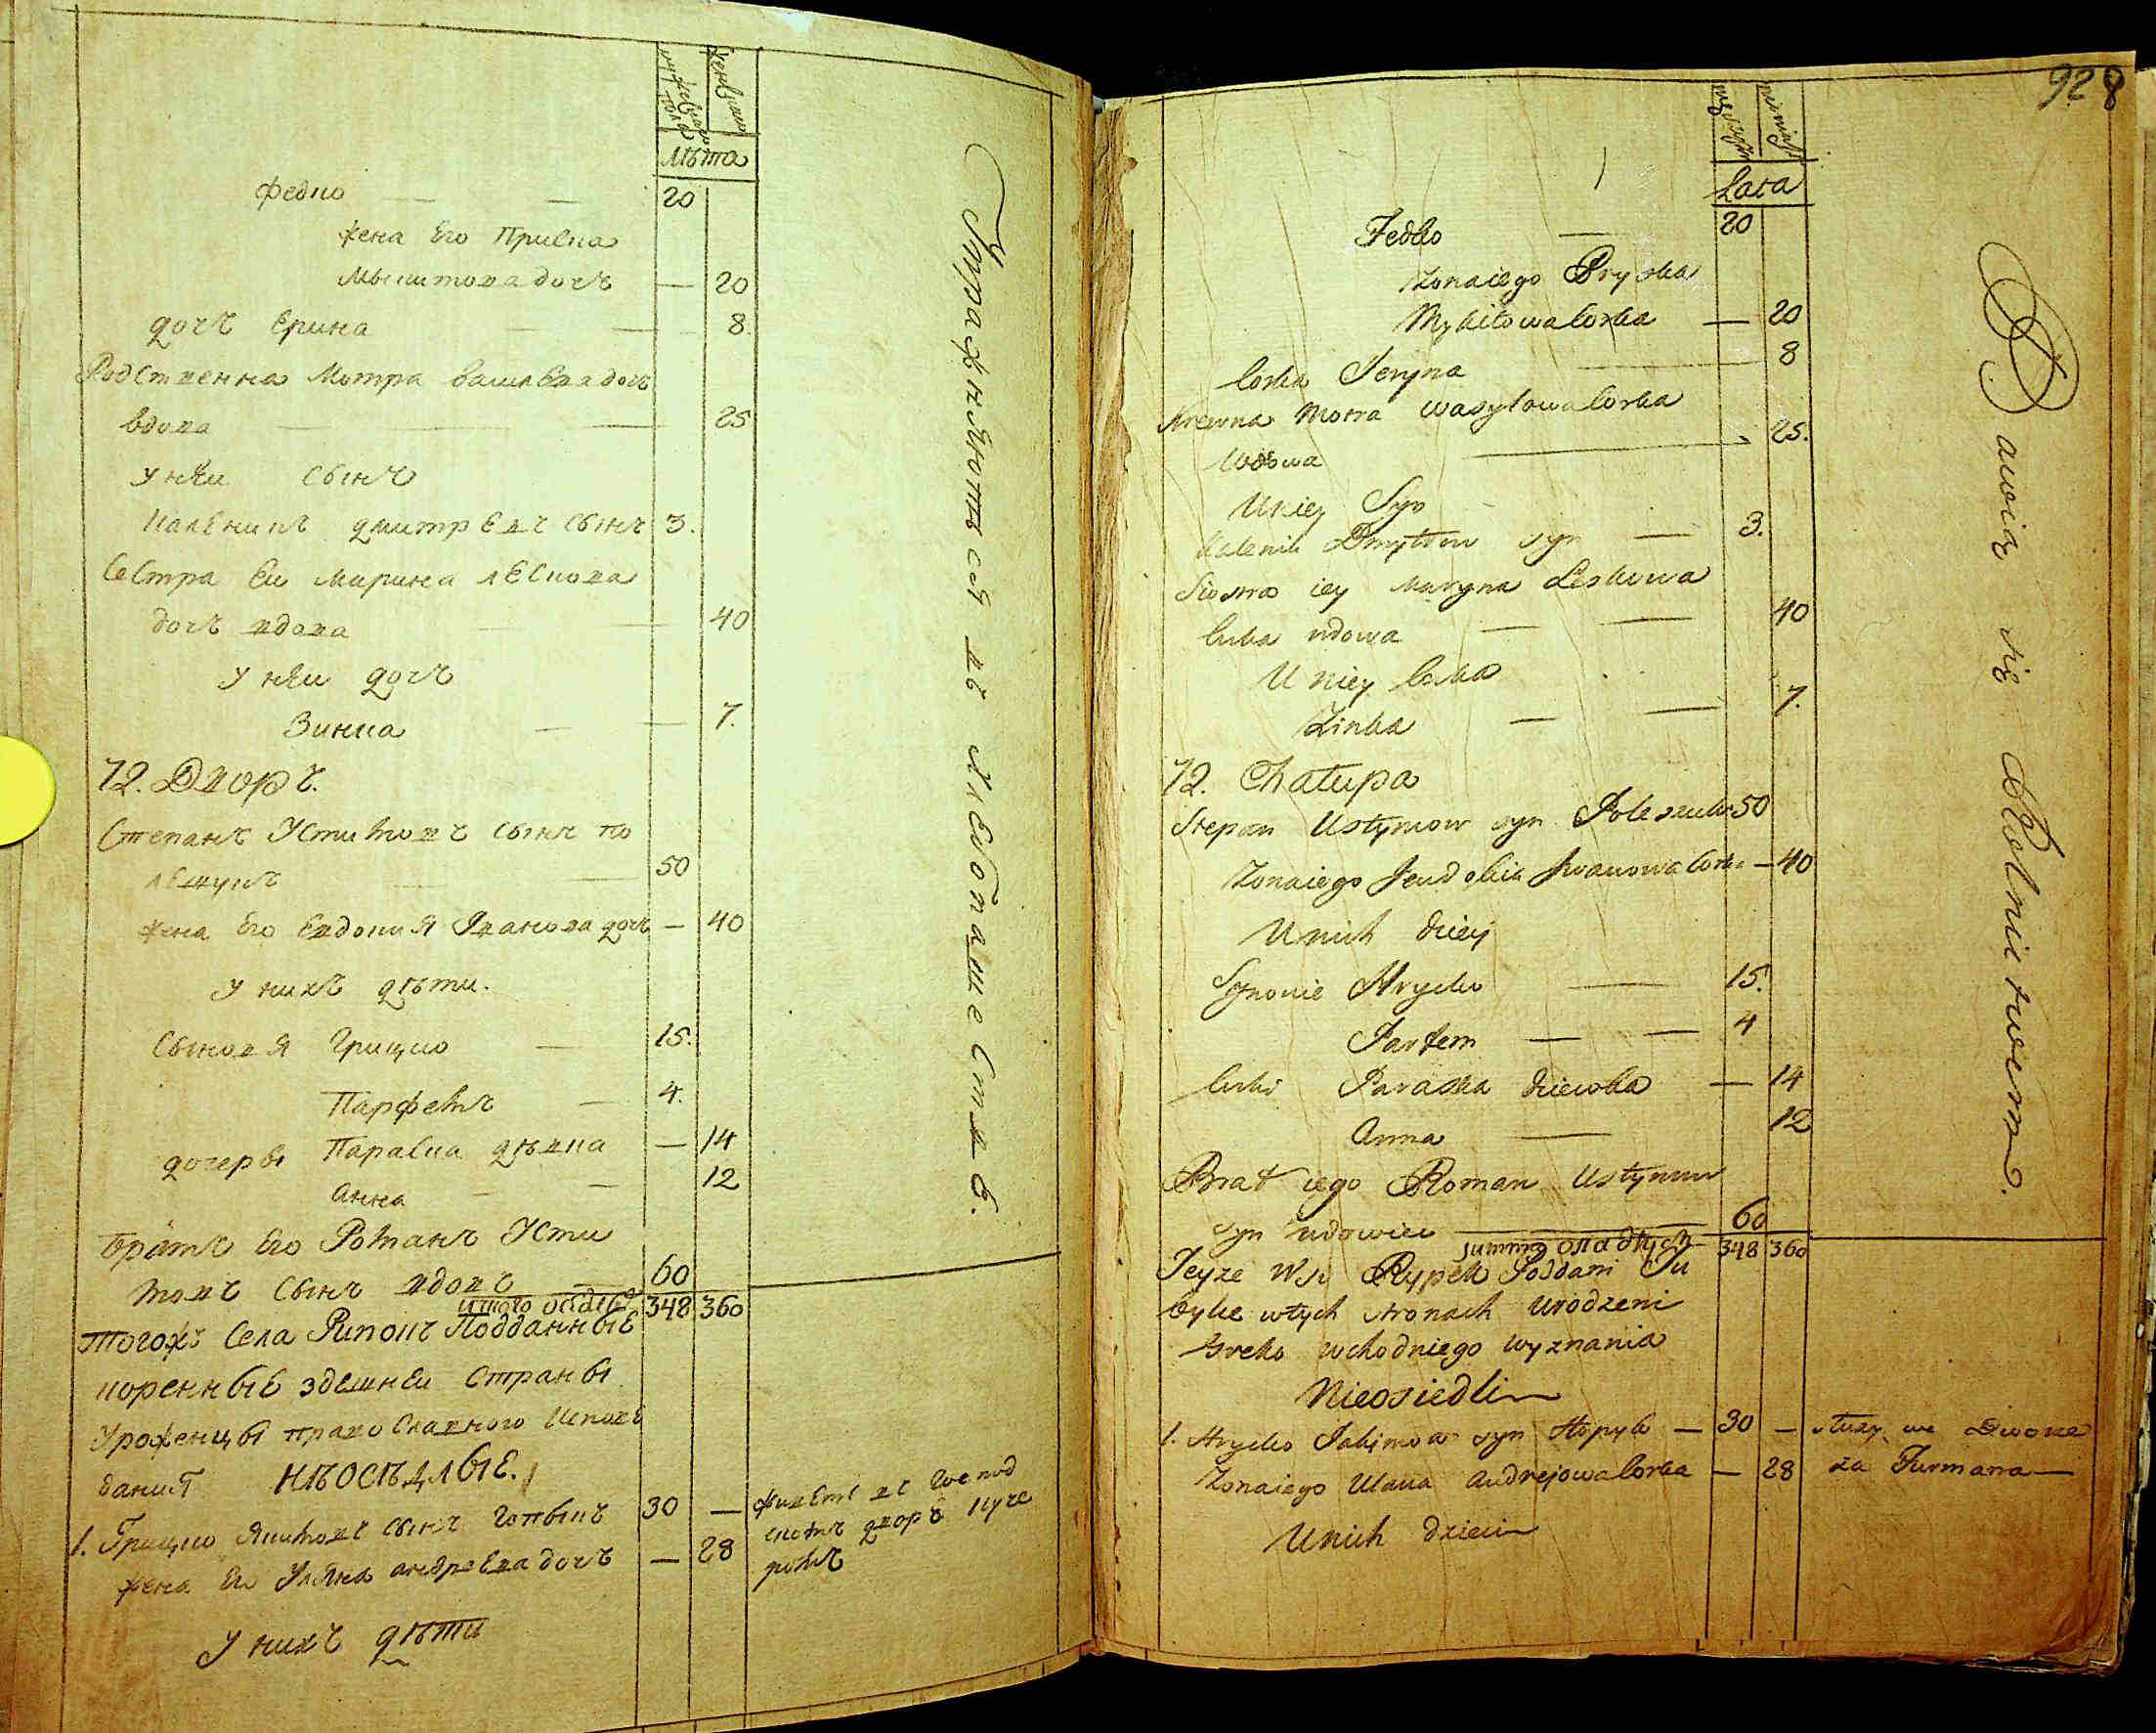 мужеска пола
женска
лѣта
Федко — — 20
жена Его Приска
Мыкитова дочь — 20
дочь Ерина — — 8.
Родственна Мотра василева доч
вдова — — 25
У неи сынъ
Каленикъ дмитревъ сынъ 3.
Сестра Еи Марина лескова
дочь вдова — — 40
У неи дочь
Зинка — — 7.
72. Дворъ.
Степанъ Устимовъ сынъ по
лещукъ — — 50
жена Его Евдокия Иванова дочь — 40
У нихъ дѣти.
Сыновя Грицко — 15.
Парфемъ — 4.
дочеры Параска дѣвка — 14
анна — — 12
братъ Его Романъ Усти
мовъ Сынъ вдовъ — 60
итого 348 360
тогожъ Села Рипокъ Подданные
коренные здешнеи Страны
Уроженцы православного Испове
дания нѣосѣдлые.
1. Грицко Якимовъ сынъ 30 —
жена Его Уляна андреева дочь — 28
У нихъ дѣти
живетъ
дворъ куче
ромъ
Упражняютъся въ хлебопашестве.
928
Lata
Fedko — 20
Żona iego Pryska
Mykitowa Corka — 20
Corka Jeryna — 8
Krewna Motra wasylowa Corka
Wdowa — 25.
U niey Syn
Kalenik Dmytrow syn — 3.
Siostra iey Maryna Leskowa
Corka wdowa — — 40
U niey Corka
Zinka — — 7.
72. Chałupa
Stepan Ustymow syn Poleszuk 50
Żona iego Jeudokia Jwanowa Corka — 40
U nich dzieci
Synowie Hrycko — 15.
Parfem — — 4
Corki Paraska dziewka — 14
Anna — 12
Brat iego Roman Ustymow
syn wdowiec — 60
summa osiadłych 348 360
Teyże Wsi Rypek Poddani
wtych stronach Urodzeni
Greko wchodniego wyznania
Nieosiedli
1. Hrycko Jakimow syn — 30 — służy we Dworze
Żona iego Ulana Andrejowa Corka — 28 za Furmana —
U nich dzieci
Bawią się Rolnictwem.